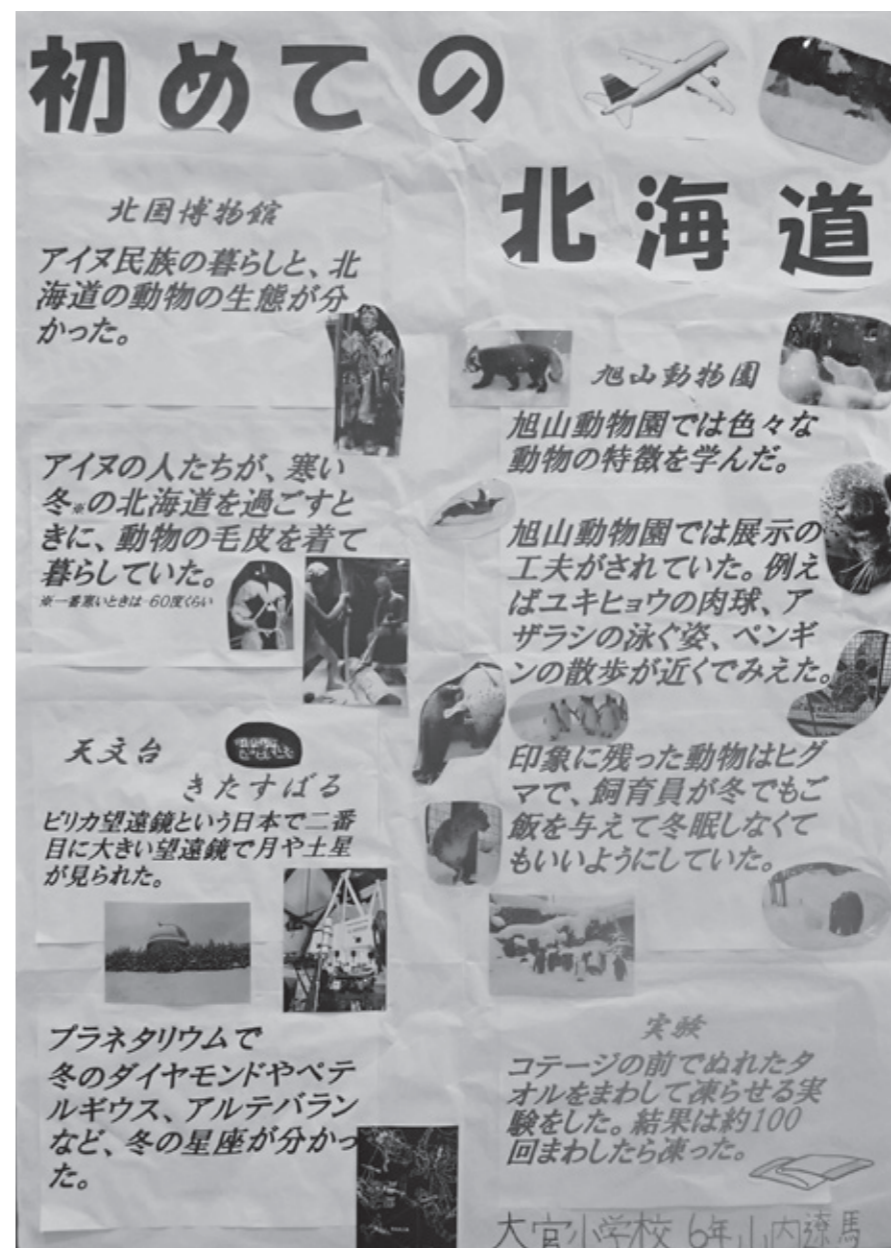 初めての
北海道
北国博物館
アイヌ民族の暮らしと、北
海道の動物の生態が分
かった。
アイヌの人たちが、寒い
冬※の北海道を過ごすと
きに、動物の毛皮を着て
暮らしていた。
※一番寒いときは-60度くらい
天文台
きたすばる
ピリカ望遠鏡という日本で二番
目に大きい望遠鏡で月や土星
が見られた。
プラネタリウムで
冬のダイヤモンドやベテ
ルギウス、アルテバラン
など、冬の星座が分かっ
た。
旭山動物園
旭山動物園では色々な
動物の特徴を学んだ。
旭山動物園では展示の
工夫がされていた。例え
ばユキヒョウの肉球、ア
ザラシの泳ぐ姿、ペンギ
ンの散歩が近くでみえた。
印象に残った動物はヒグ
マで、飼育員が冬でもご
飯を与えて冬眠しなくて
もいいようにしていた。
実験
コテージの前でぬれたタ
オルをまわして凍らせる実
験をした。結果は約100
回まわしたら凍った。
大宮小学校 6年 山内遼馬